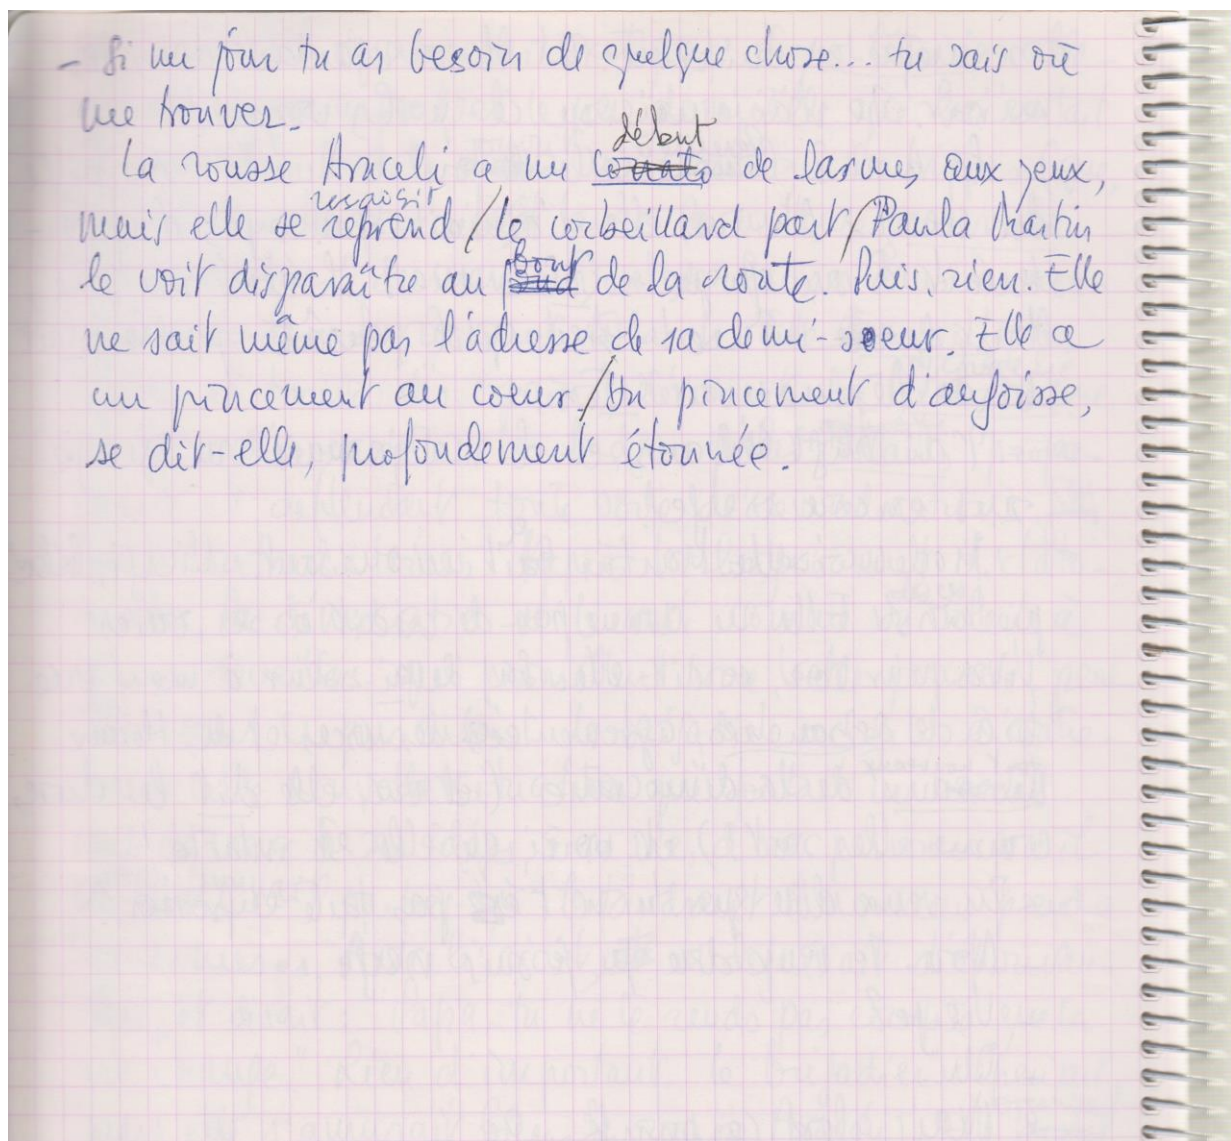 - Si un jour tu as besoin de quelque chose... tu sais où
me trouver.
début
La rousse Araceli a un de larmes aux yeux,
ressaisit
mais elle se reprend / le corbeillard part / Paula Martin
bout
le voit disparaître au de la route. Puis, rien. Elle
ne sait même pas l'adresse de sa demi-soeur. Elle a
un pincement au coeur. / Un pincement d'angoisse,
se dit-elle, profondement étonnée.